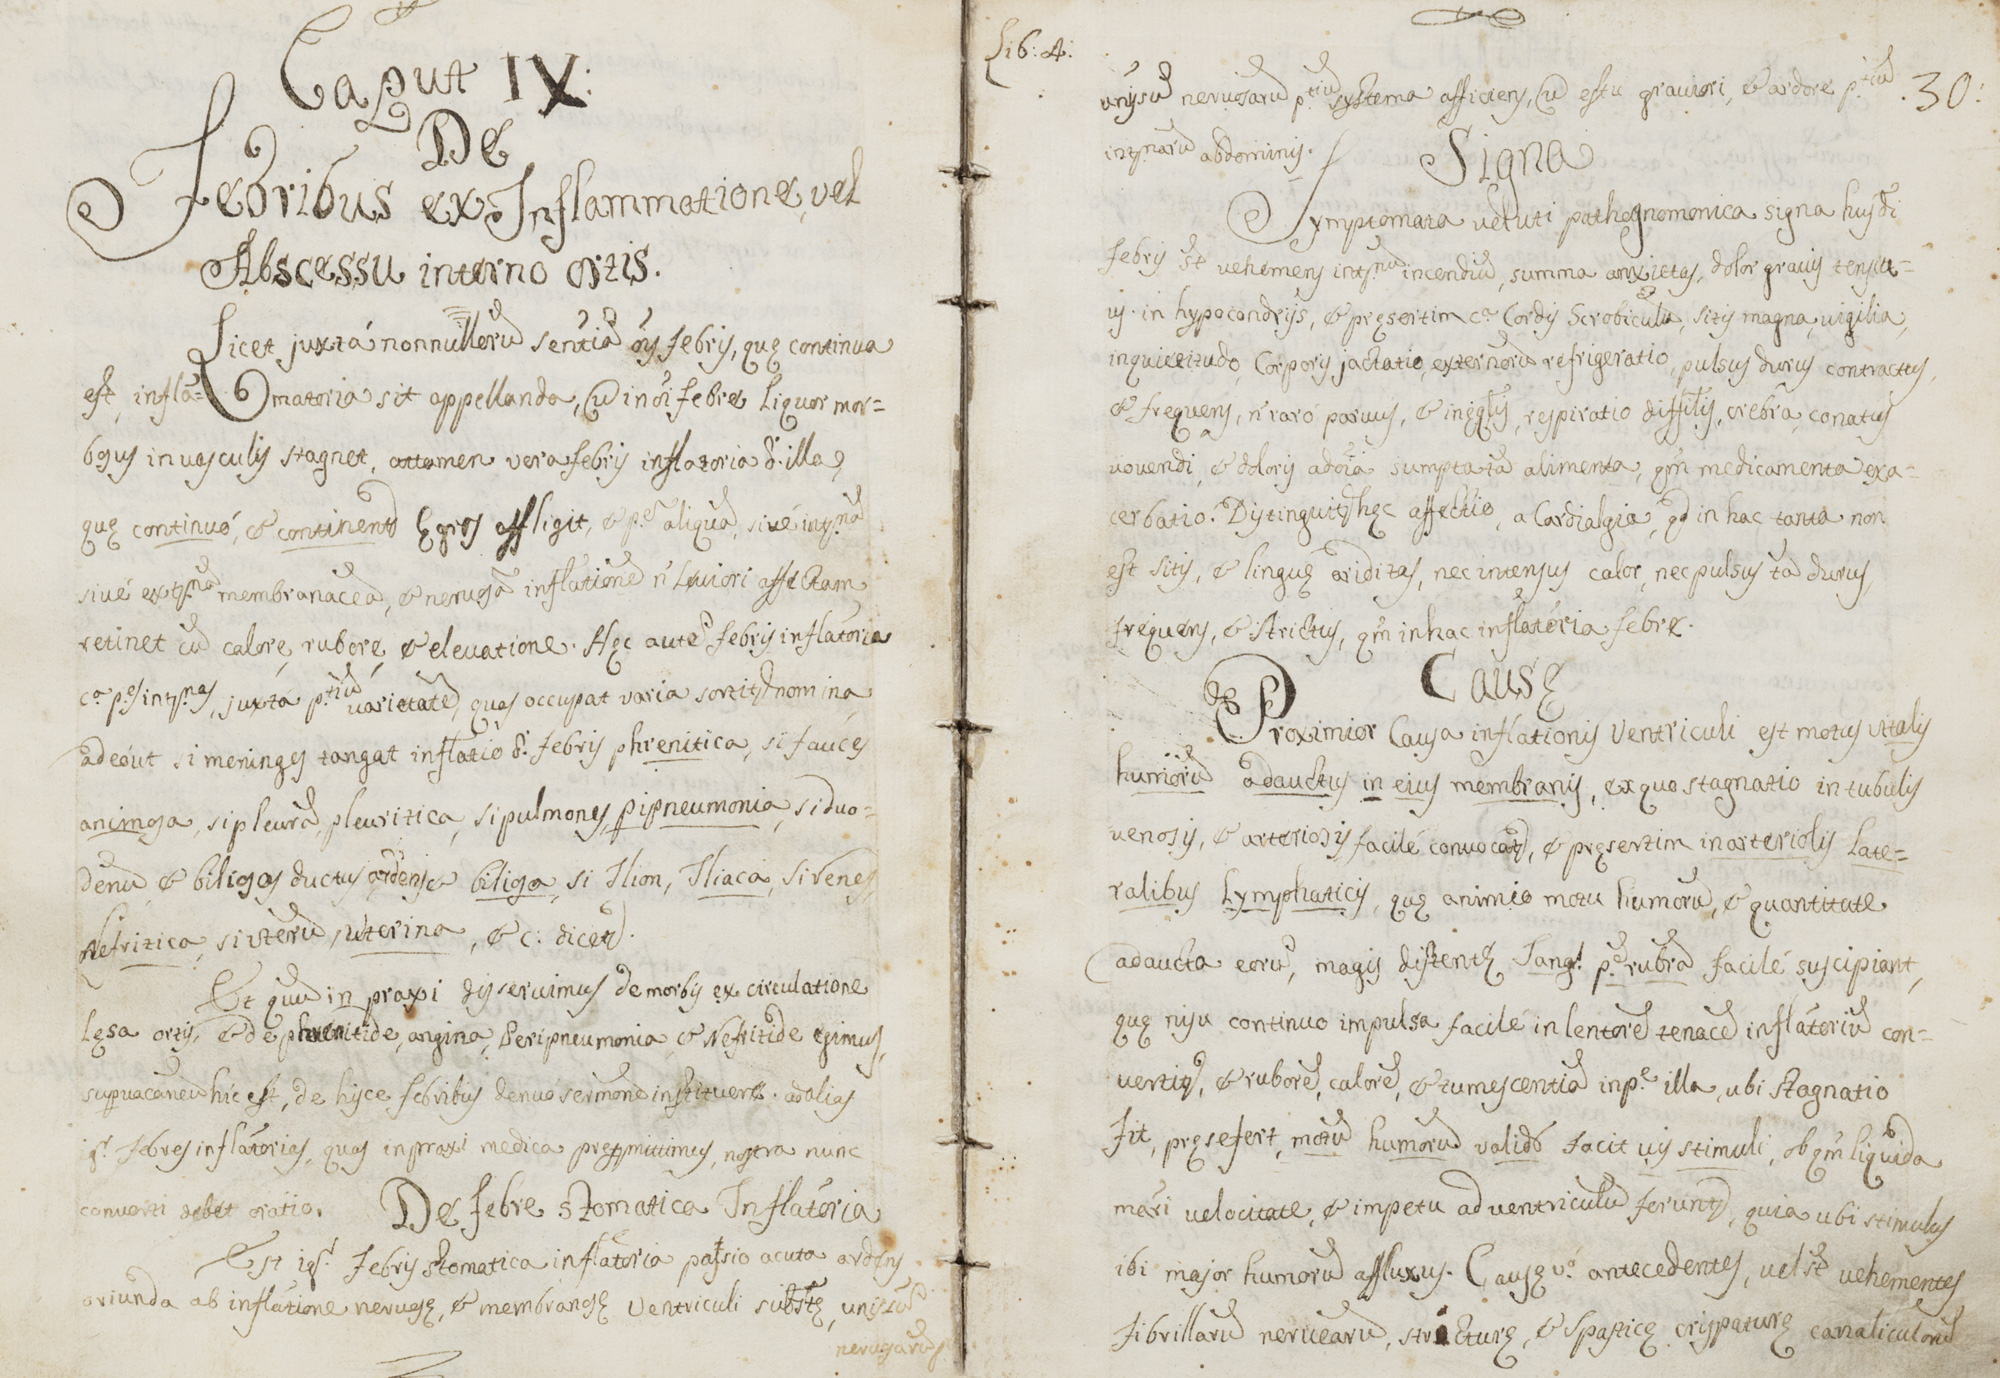 Caput IX:
De
Febribus ex Inflammatione, vel
Abscessu interno ortis.
Licet juxtá nonnullorũ sentiã oĩs febris, quę continua
est, inflã=matoria sit appellanda, cũ in oĩ febre Liquor mor=
bosus in vasculis stagnet, attamen vera febris inflatoria d.r illa,
quę continuó, & continentr Ęgros affligit, & p.em aliquã, sivé internã
sivé externã membranaceã, & nervosã inflãtione ñ Leviori affectam
retinet cũ calore, rubore, & elevatione. Hęc autẽ febris inflatória
c.a p.es internas, juxtá p.tiũ varietatẽ, quas occupat varia sortitr nomina
adeóut si meninges tangat inflatio d.r febris phrenitica, si faucés
animosa, si pleurã, pleuritica, si pulmones, pipneumonia, si duo=
denũ & biliosos ductus, ardens & biliosa, si Ilion, Iliaca, si renes,
Nefritica, si uterũ, uterina, & c: dicetr.
Et quũ in praxi disseruimus de morbis ex circulatione
Lęsa ortis, & de phrenitide, angina, Peripneumonia, & Nefritide egimus,
supvacaneũ hic est, de hisce febribus denuó sermonẽ instituere. ad alias
igr. febres inflatorias, quas in praxi medica prętermittimus, nostra nunc
converti debet oratio. De febre stomatica Inflatória
Est igr. Febris stomatica inflatória passio acuta ardens
oriunda ab inflatione nervosę, & membranosę Ventriculi substę, universũ
nervosarũ
Lib: 4:
30:
universũ nervosarũ p.tiũ systema afficiens, cũ estu graviori, & ardore p.tiũ
internarũ abdominis.
Signa
Symptomata veluti pathognomonica signa hujdi
febris st vehemens internũ incendiũ, summa anxietas, dolor gravis tensit=
vs in hypocondrijs, & pręsertim c.a Cordis Scrobiculũ, sitis magna, vigilia,
inquietudo, Corporis jactatio, externorũ refrigeratio, pulsus durus contractus,
& frequens, ñ raró parvus, & inęqlis, respiratio diffilis, crebra, conatus
vovendi, & doloris ad oĩa sumpta tã alimenta, qm̃ medicamenta exa=
cerbatio. Distinguitr hęc affectio, a Cardialgia, qd in hac tanta non
est sitis, & linguę ariditas, nec intensus calor, nec pulsus tã durus,
frequens, & strictus, qm̃ in hac inflatória febre.
Causę
Proximior Causa inflationis Ventriculi est motus vitalis
humorũ adauctus in eius membranis, ex quo stagnatio in tubulis
venosis, & arteriosis facilé convocatr, & pręsertim in arteriolis Late=
ralibus Lymphaticis, quę animio motu humorũ, & quantitate
adaucta eorũ, magis distentę Sang.s p.em rubrã facilé suscipiant,
quę nisu continuo impulsa facilé in lentorẽ tenacẽ inflatoriũ con=
vertitr, & ruborẽ, calorẽ, & tumescentiã in p.e illa, ubi stagnatio
fit, pręsefert, motũ humorũ validé facit vis stimuli, ob qm̃ liquida
mari velocitate, & impetu ad ventriculũ feruntr, quia ubi stimulus
ibi major humorũ affluxus. Causę vó antecedentes, vel st vehementes
fibrillarũ nervearũ, stricturę, & Spasticę crispaturę canaliculorũ